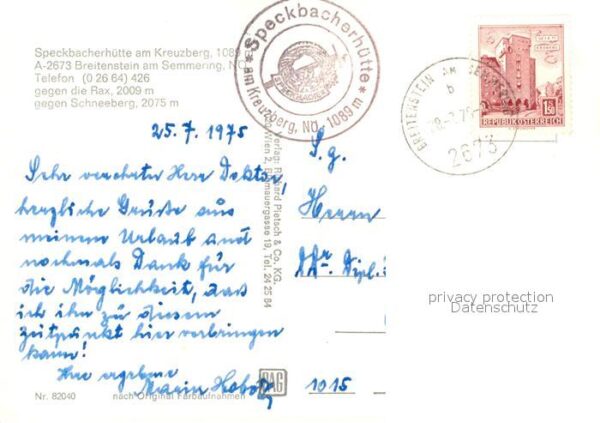 Speckbacherhütte am Kreuzberg, 1089
A-2673 Breitenstein am Semmering, NÖ
Telefon (0 26 64) 426
gegen die Rax, 2009 m
gegen Schneeberg, 2075 m
* Speckbacherhütte *
am Kreuzberg, NÖ, 1089 m
SPECKBACHER
BREITENSTEIN AM SEMMERING
b
2673
1.50
REPUBLIK ÖSTERREICH
25.7.1975
Sehr verehrter Herr Doktor,
herzliche Grüße aus
meinem Urlaub und
nochmals Dank für
die Möglichkeit, daß
ich ihn zu diesem
Zeitpunkt hier verbringen
kann!
Ihre ergebene
Maria
Verlag: Richard Pietsch & Co. KG.
Wien 2, 19, Tel. 24 25 84
S. g.
Herrn
DDr. Dipl.
1015
privacy protection
Datenschutz
Nr. 82040
nach Original Farbaufnahmen
PAG